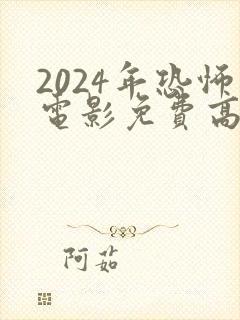 2024年恐怖
電影免費高
阿茹